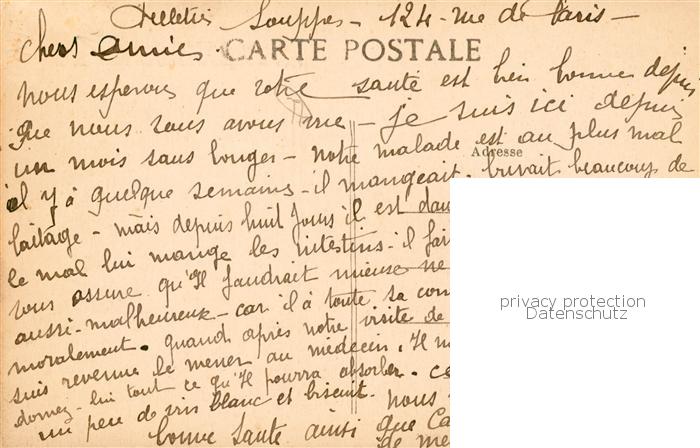 Souppes - 124 - rue de Paris -
chers amies CARTE POSTALE
nous esperons que votre santé est bien bonne depuis
que nous vous avons vue - je suis ici depuis
un mois sans bouger - notre malade est au plus mal
Adresse
il y à quelque semaines - il mangeait. buvait beaucoup de
laitage - mais depuis huit jours il est dans
le mal lui mange les intestins - il
vous assure qu'Il faudrait mieux ne
aussi - malheureux - car il à toute sa
moralement. quand après notre visite de
suis revenue le mener au médecin. Il
donnez - lui tout ce qu'Il pourra absorber -
un peu de vin blanc et biscuit. nous
bonne santé ainsi que
de
privacy protection
Datenschutz